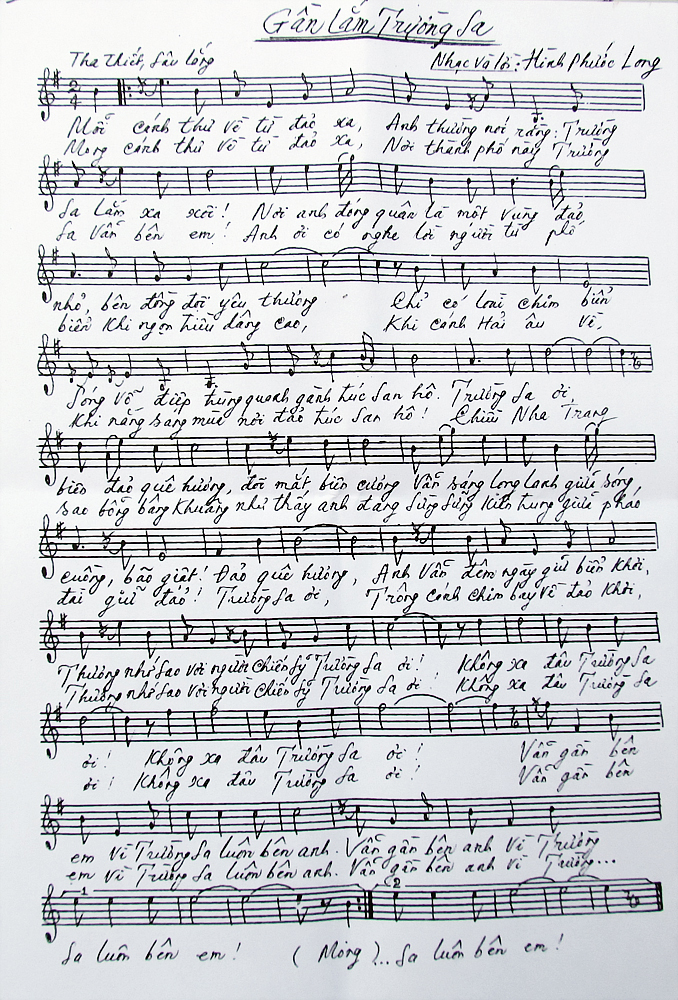 Gần Lắm Trường Sa
Tha thiết, sâu lắng
Nhạc và lời: Hình Phước Long
2
4
Mỗi cánh thư về từ đảo xa, Anh thường nói rằng: Trường
Mong cánh thư về từ đảo xa, Nơi thành phố này Trường
Sa lắm xa xôi! Nơi anh đóng quân là một vùng đảo
Sa vẫn bên em! Anh ơi có nghe lời người từ phố
nhỏ, bên đồng đội yêu thương Chỉ có loài chim biển
biển Khi ngọn triều dâng cao, Khi cánh Hải âu về,
Sóng vỗ điệp trùng quanh gành trúc San hô. Trường Sa ơi,
Khi nắng sang mùa nơi đảo trúc San hô! Chiều Nha Trang
biển đảo quê hương, đôi mắt biên cương vẫn sáng long lanh giữa sóng
sao bỗng bâng khuâng như thấy anh đang sừng sững hiên ngang giữa pháo
cuồng, bão giật! Đảo quê hương, Anh vẫn đêm ngày giữ biển khơi,
đài giữ đảo! Trường Sa ơi, Trông cánh chim bay về đảo khơi,
Thương nhớ sao với người chiến sỹ Trường Sa ơi! Không xa đâu Trường Sa
Thương nhớ sao với người chiến sỹ Trường Sa ơi! Không xa đâu Trường Sa
ơi! Không xa đâu Trường Sa ơi! Vẫn gần bên
ơi! Không xa đâu Trường Sa ơi! Vẫn gần bên
em vì Trường Sa luôn bên anh. Vẫn gần bên anh vì Trường
em vì Trường Sa luôn bên anh. Vẫn gần bên anh vì Trường...
1
2
Sa luôn bên em! (Mong)... Sa luôn bên em!